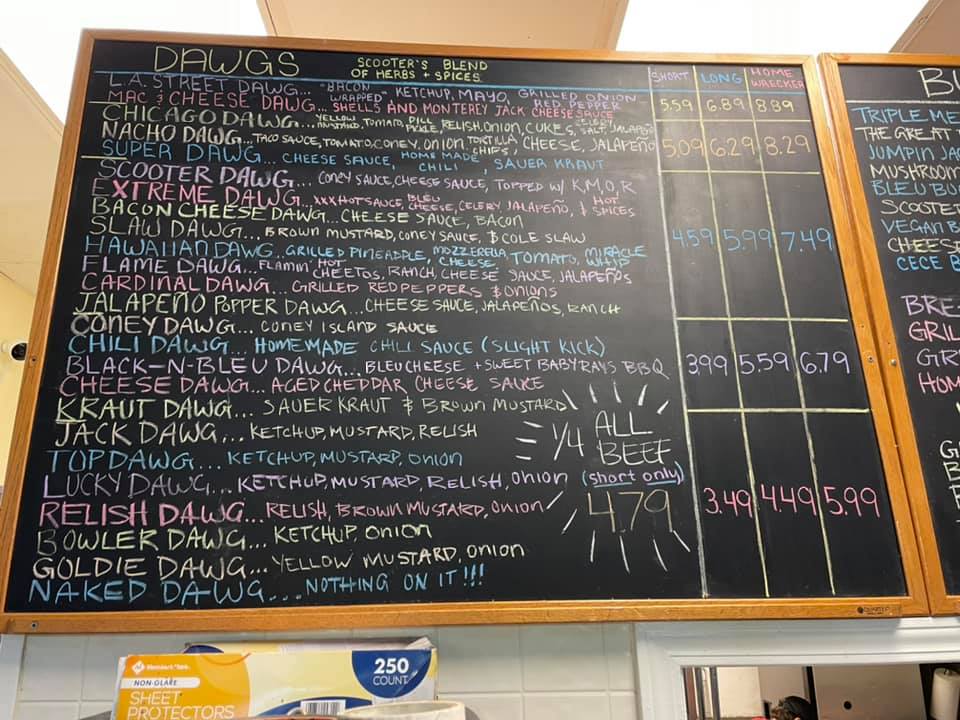 DAWGS SCOOTER'S BLEND OF HERBS + SPICES
SHORT LONG HOME WRECKER
L.A. STREET DAWG... "BACON WRAPPED" KETCHUP, MAYO, GRILLED ONION, RED PEPPER
MAC & CHEESE DAWG... SHELLS AND MONTEREY JACK CHEESE SAUCE
5.59 6.89 8.89
CHICAGO DAWG... YELLOW MUSTARD, TOMATO, DILL PICKLE, RELISH, ONION, CUKES, CELERY SALT, JALAPEÑO
NACHO DAWG... TACO SAUCE, TOMATO, CONEY, ONION, TORTILLA CHIPS, CHEESE, JALAPEÑO
SUPER DAWG... CHEESE SAUCE, HOME MADE CHILI, SAUER KRAUT
5.09 6.29 8.29
SCOOTER DAWG... CONEY SAUCE, CHEESE SAUCE, TOPPED W/ K, M, O, R
EXTREME DAWG... XXX HOT SAUCE, BLEU CHEESE, CELERY JALAPEÑO, & HOT SPICES
BACON CHEESE DAWG... CHEESE SAUCE, BACON
SLAW DAWG... BROWN MUSTARD, CONEY SAUCE, & COLE SLAW
HAWAIIAN DAWG... GRILLED PINEAPPLE, MOZZERELLA CHEESE, TOMATO, MIRACLE WHIP
FLAME DAWG... FLAMIN' HOT CHEETOS, RANCH, CHEESE SAUCE, JALAPEÑOS
CARDINAL DAWG... GRILLED RED PEPPERS & ONIONS
JALAPEÑO POPPER DAWG... CHEESE SAUCE, JALAPEÑOS, RANCH
4.59 5.99 7.49
CONEY DAWG... CONEY ISLAND SAUCE
CHILI DAWG... HOMEMADE CHILI SAUCE (SLIGHT KICK)
BLACK-N-BLEU DAWG... BLEU CHEESE + SWEET BABY RAYS BBQ
CHEESE DAWG... AGED CHEDDAR CHEESE SAUCE
3.99 5.59 6.79
KRAUT DAWG... SAUER KRAUT & BROWN MUSTARD
JACK DAWG... KETCHUP, MUSTARD, RELISH
TOP DAWG... KETCHUP, MUSTARD, ONION
LUCKY DAWG... KETCHUP, MUSTARD, RELISH, ONION
RELISH DAWG... RELISH, BROWN MUSTARD, ONION
BOWLER DAWG... KETCHUP, ONION
GOLDIE DAWG... YELLOW MUSTARD, ONION
NAKED DAWG... NOTHING ON IT!!!
1/4 ALL BEEF
(short only)
4.79
3.49 4.49 5.99
QUARTET
BU
TRIPLE ME
THE GREAT
JUMPIN JA
MUSHROOM
BLEU BU
SCOOTE
VEGAN B
CHEESE
CECE B
BRE
GRIL
HOM
Member's Mark
NON-GLARE
SHEET
PROTECTORS
250
COUNT